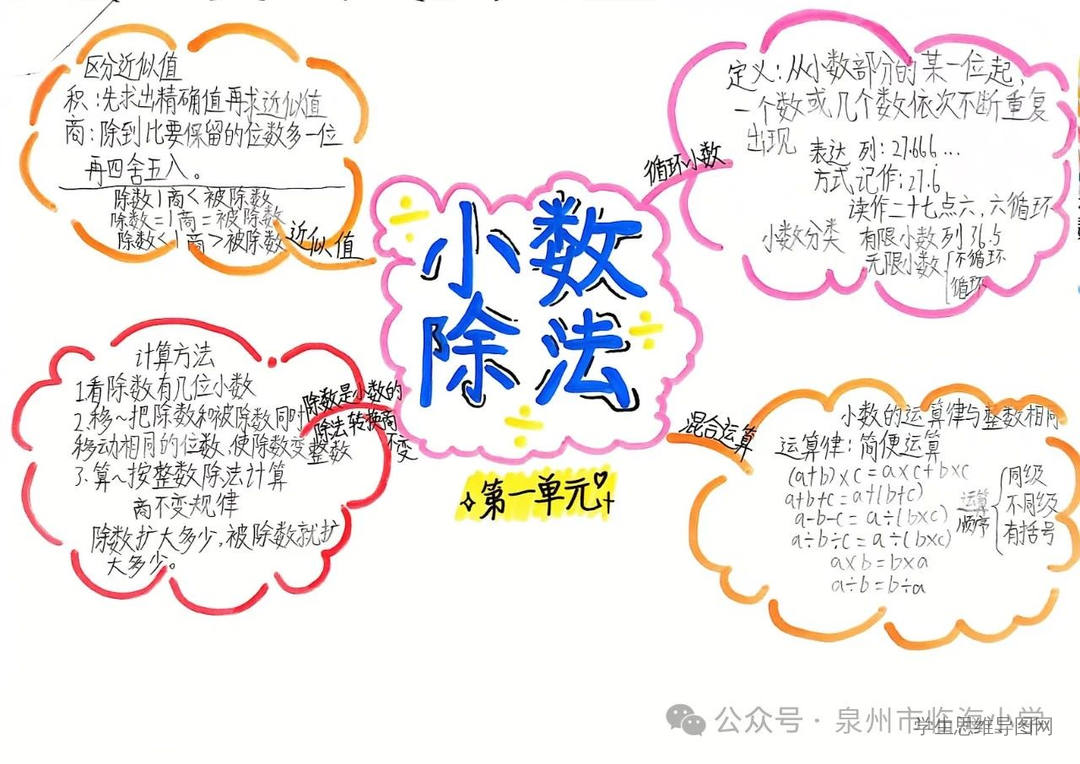 小数
除法
第一单元
近似值
区分近似值
积:先求出精确值再求近似值
商:除到比要保留的位数多一位
再四舍五入。
除数>1商<被除数
除数=1商=被除数
除数<1商>被除数
循环小数
定义:从小数部分的某一位起,
一个数或几个数依次不断重复
出现
表达 列:27.666...
方式 记作:27.6
读作二十七点六,六循环
小数分类 有限小数列36.5
无限小数 不循环
循环
除数是小数的
除法转换商
不变
计算方法
1.看除数有几位小数
2.移~把除数和被除数同时
移动相同的位数,使除数变整数
3.算~按整数除法计算
商不变规律
除数扩大多少,被除数就扩
大多少。
混合运算
小数的运算律与整数相同
运算律:简便运算
(a+b)×c=a×c+b×c
a+b+c=a+(b+c)
a-b-c=a÷(b×c)
a÷b÷c=a÷(b×c)
a×b=b×a
a÷b=b÷a
运算
顺序
同级
不同级
有括号
公众号·泉州市临海小学
学生思维导图网